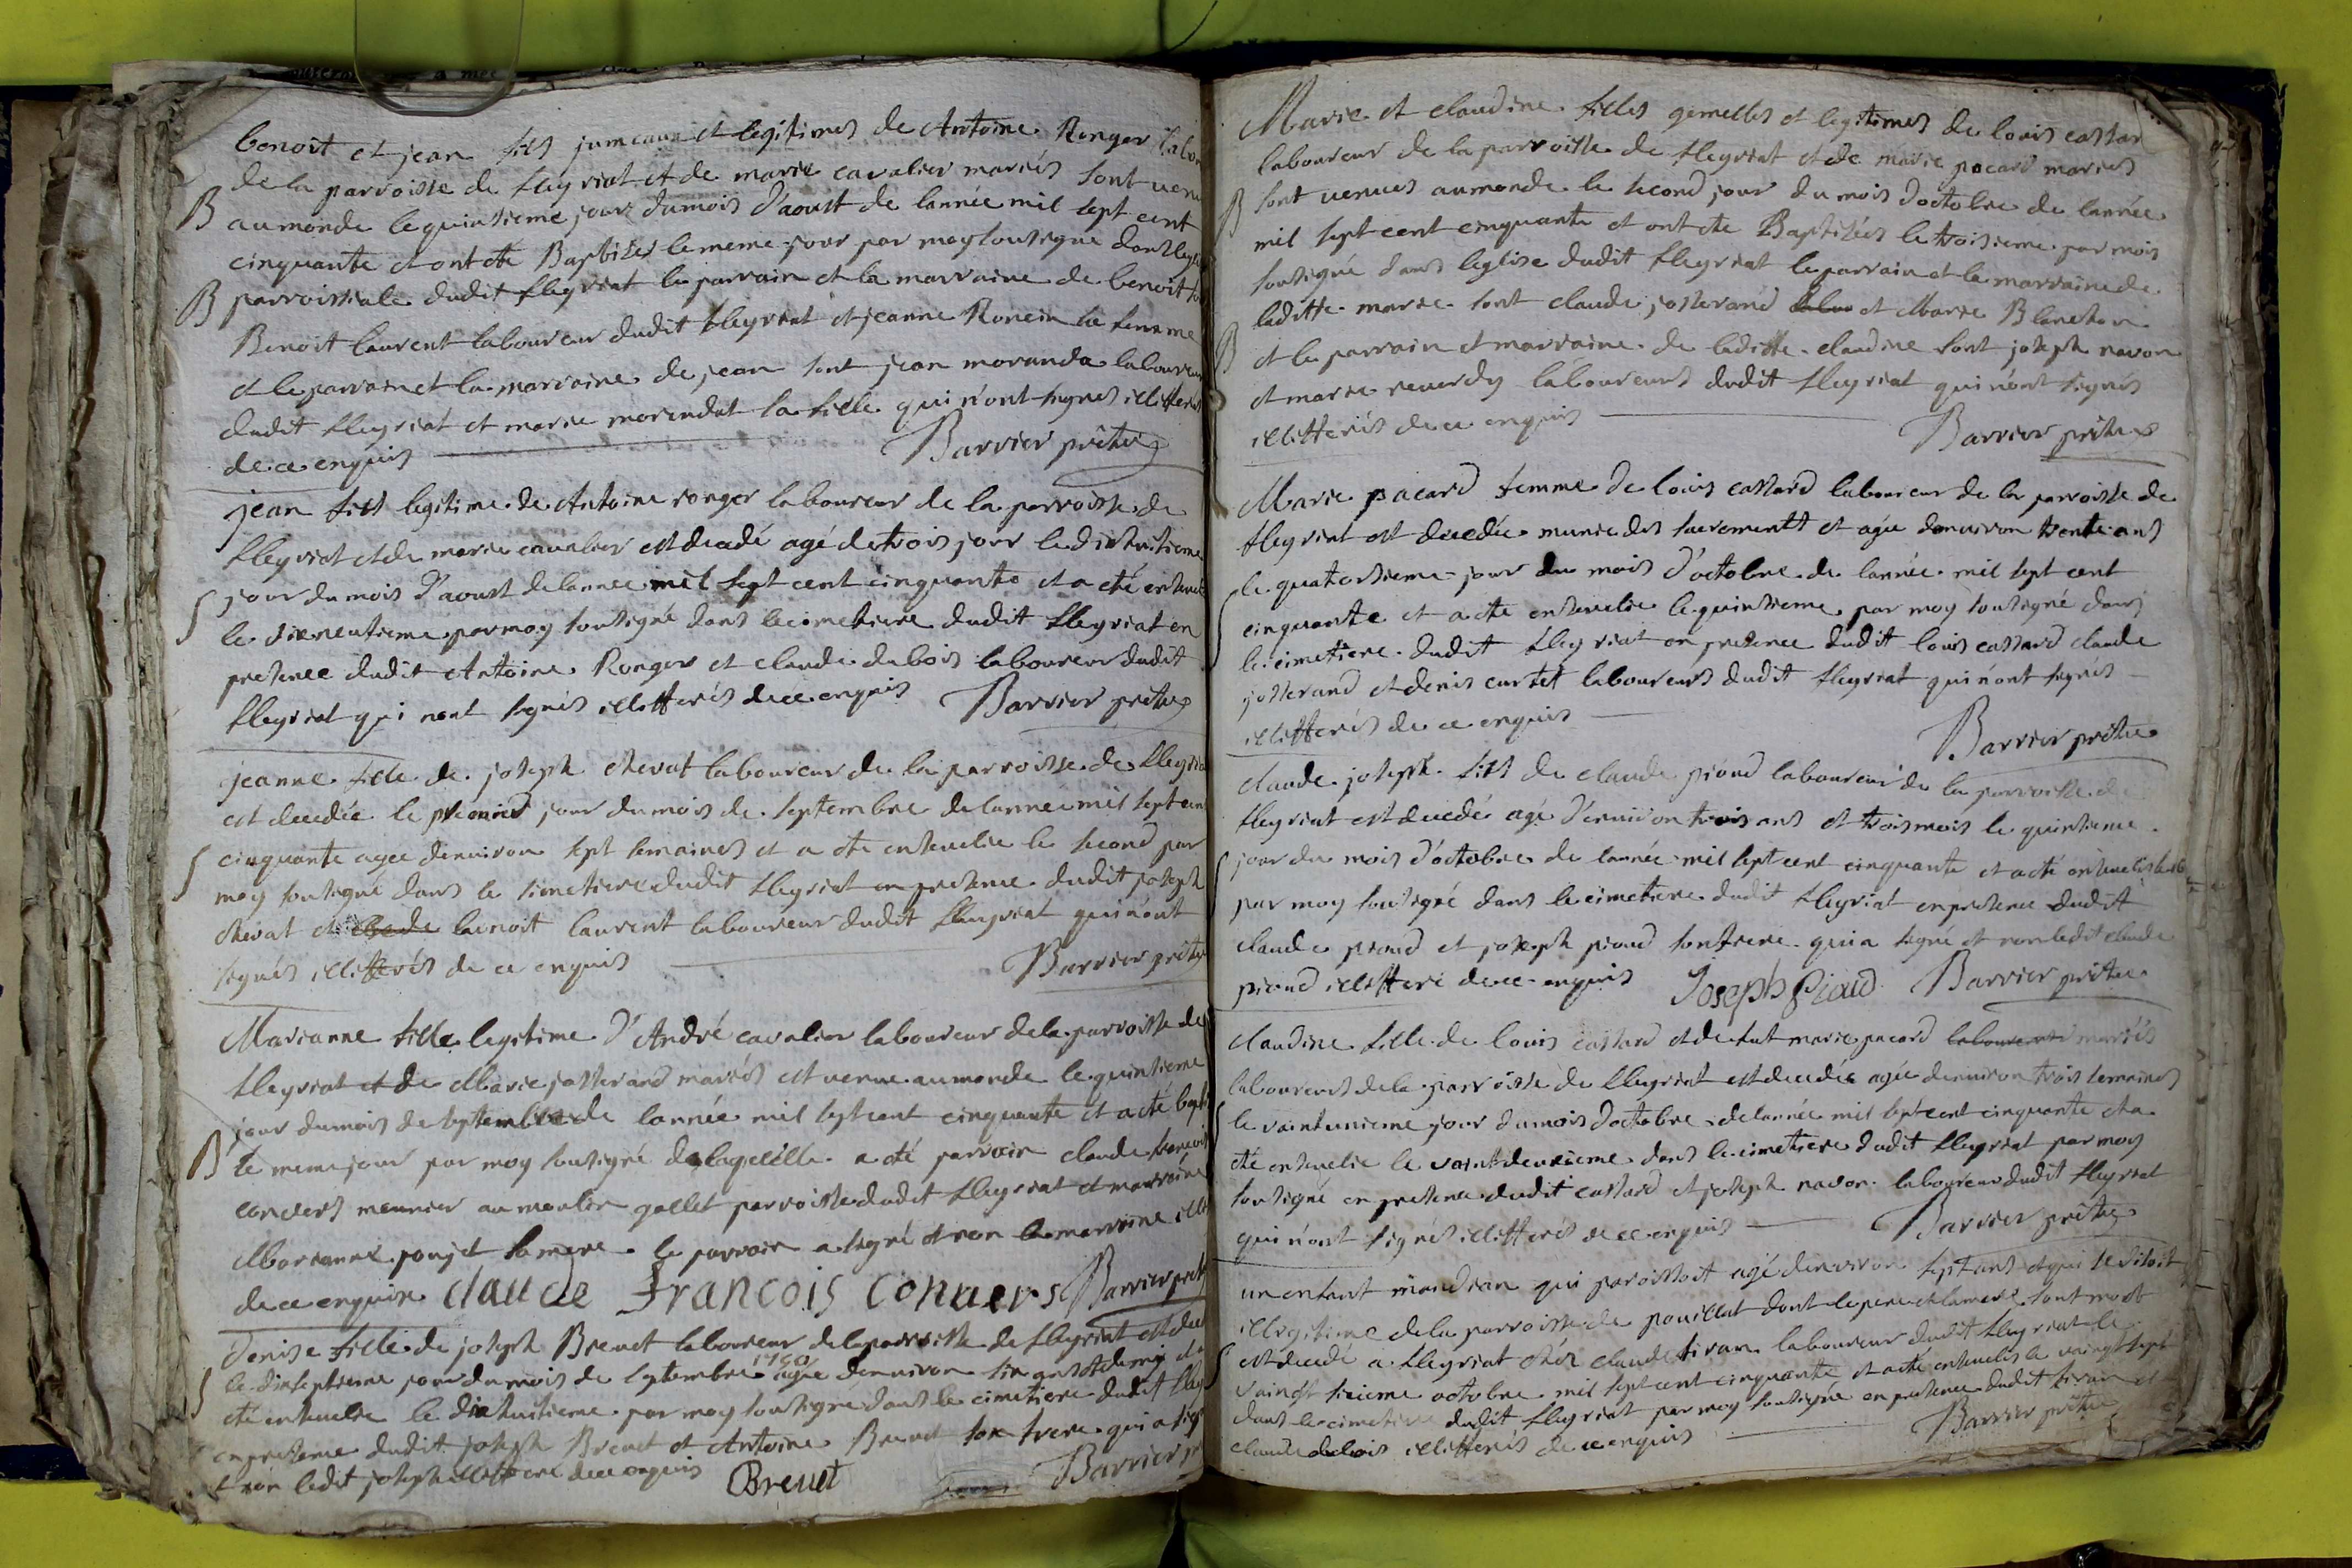 benoit et jean fils jumeaux et legitimes de Antoine Ronger
de la parroisse de fleyriat et de marie cavalier mariés sont venu
B au monde le quinsieme jour du mois d'aoust de lannée mil sept cent
cinquante et ont ete Baptises le meme jour par moy sousigne dans legli
B parroissiale dudit fleyriat le parrain et la marraine de benoit
Benoit laurent laboureur dudit fleyriat et jeanne Roncin sa femme
et le parrain et la marraine de jean sont jean moranda laboureur
dudit fleyriat et marie morandat sa fille qui n'ont signes illitterés
de ce enquis
Barrier prêtre
jean fils legitime de Antoine ronger laboureur de la parroisse de
fleyriat et de marie cavalier est decedé agé de trois jour le dishuitieme
S jour du mois d'aoust de lannee mil sept cent cinquante et a eté enseveli
le dixneufieme par moy sousigné dans le cimetiere dudit fleyriat en
presence dudit Antoine Ronger et claude dubois laboureur dudit
fleyriat qui nont signés illitterés de ce enquis Barrier prêtre
jeanne fille de joseph chevat laboureur de la parroisse de fleyria
est decedée le premier jour du mois de septembre de lannée mil sept cen
S cinquante agee denviron sept semaines et a ete ensevelie le second par
moy sousigné dans le simetiere dudit fleyriat en presence dudit joseph
chevat et benoit laurent laboureur dudit fleyriat qui n'ont
signés illitterés de ce enquis
Barrier prêtre
Marianne fille legitime d'André cavalier laboureur de la parroisse de
fleyriat et de Marie josserand mariés est venue au monde le quinsieme
jour du mois de septembre de lannée mil sept cent cinquante et a eté bapt
B le meme jour par moy sousigné de laquelle a eté parrain claude francois
convers meunier au moulin gallet parroisse dudit fleyriat et marraine
Marianne poujet sa mere le parrain a signé et non la marraine ille
de ce enquise claude francois convers Barrier pret
Denise fille de joseph Brevet laboureur de la parroisse de fleyriat est dec
S le dixseptieme jour du mois de septembre 1750 agee denviron six ans et demi et a
eté ensevelie le dixhuitieme par moy sousigne dans le cimetiere dudit fley
en presence dudit joseph Brevet et Antoine Brevet son frere qui a sign
et non ledit joseph illitteré de ce enquis Brevet Barrier
Marie et claudine filles gemelles et legitimes de louis castar
laboureur de la parroisse de fleyriat et de marie pacard mariés
B sont venues au monde le second jour du mois d'octobre de lannée
mil sept cent cinquante et ont ete Baptisées le troisieme par mois
sousigné dans leglise dudit fleyriat le parrain et le marraine de
laditte marie sont claude josserand et Marie Blanchon
B et le parrain et marraine de laditte claudine sont joseph navon
et marie reverdy laboureurs dudit fleyriat qui n'ont signés
illitterés de ce enquis
Barrier prêtre
Marie pacard femme de louis castard laboureur de la parroisse de
fleyriat est decedée munie des sacrements et agée denviron trente ans
S le quatorsieme jour du mois d'octobre de lannée mil sept cent
cinquante et a ete ensevelie le quinsieme par moy sousigné dans
le cimetiere dudit fleyriat en presence dudit louis castard claude
josserand et denis curtet laboureurs dudit fleyriat qui n'ont signés
illitterés de ce enquis
Barrier prêtre
claude joseph fils de claude pioud laboureur de la parroisse de
fleyriat est decedé agé d'environ trois ans et trois mois le quinsieme
S jour du mois d'octobre de lannée mil sept cent cinquante et a eté enseveli le 16
par moy sousigné dans le cimetiere dudit fleyriat en presence dudit
claude pioud et joseph pioud son frere qui a signé et non ledit claude
pioud illitteré de ce enquis Joseph Piaud Barrier prêtre
claudine fille de louis castard et de fut marie pacard laboureurs mariés
laboureurs de la parroisse de fleyriat est decedée agée denviron trois semaines
S le vaintunieme jour du mois d'octobre de lannée mil sept cent cinquante et a
eté ensevelie le vaintdeuxieme dans le cimetiere dudit fleyriat par moy
sousigné en presence dudit castard et joseph navon laboureur dudit fleyriat
qui n'ont signés illitterés de ce enquis Barrier prêtre
un enfant mandian qui paroissoit agé denviron sept ans et qui se disoit
illegitime de la parroisse de pouillat dont le pere et la mere sont mort
S est decedé a fleyriat chéz claude siran laboureur dudit fleyriat le
vaingt sixieme octobre mil sept cent cinquante et a eté enseveli le vaingt sept
dans le cimetiere dudit fleyriat par moy sousigné en presence dudit siran et
claude dubois illitterés de ce enquis
Barrier prêtre